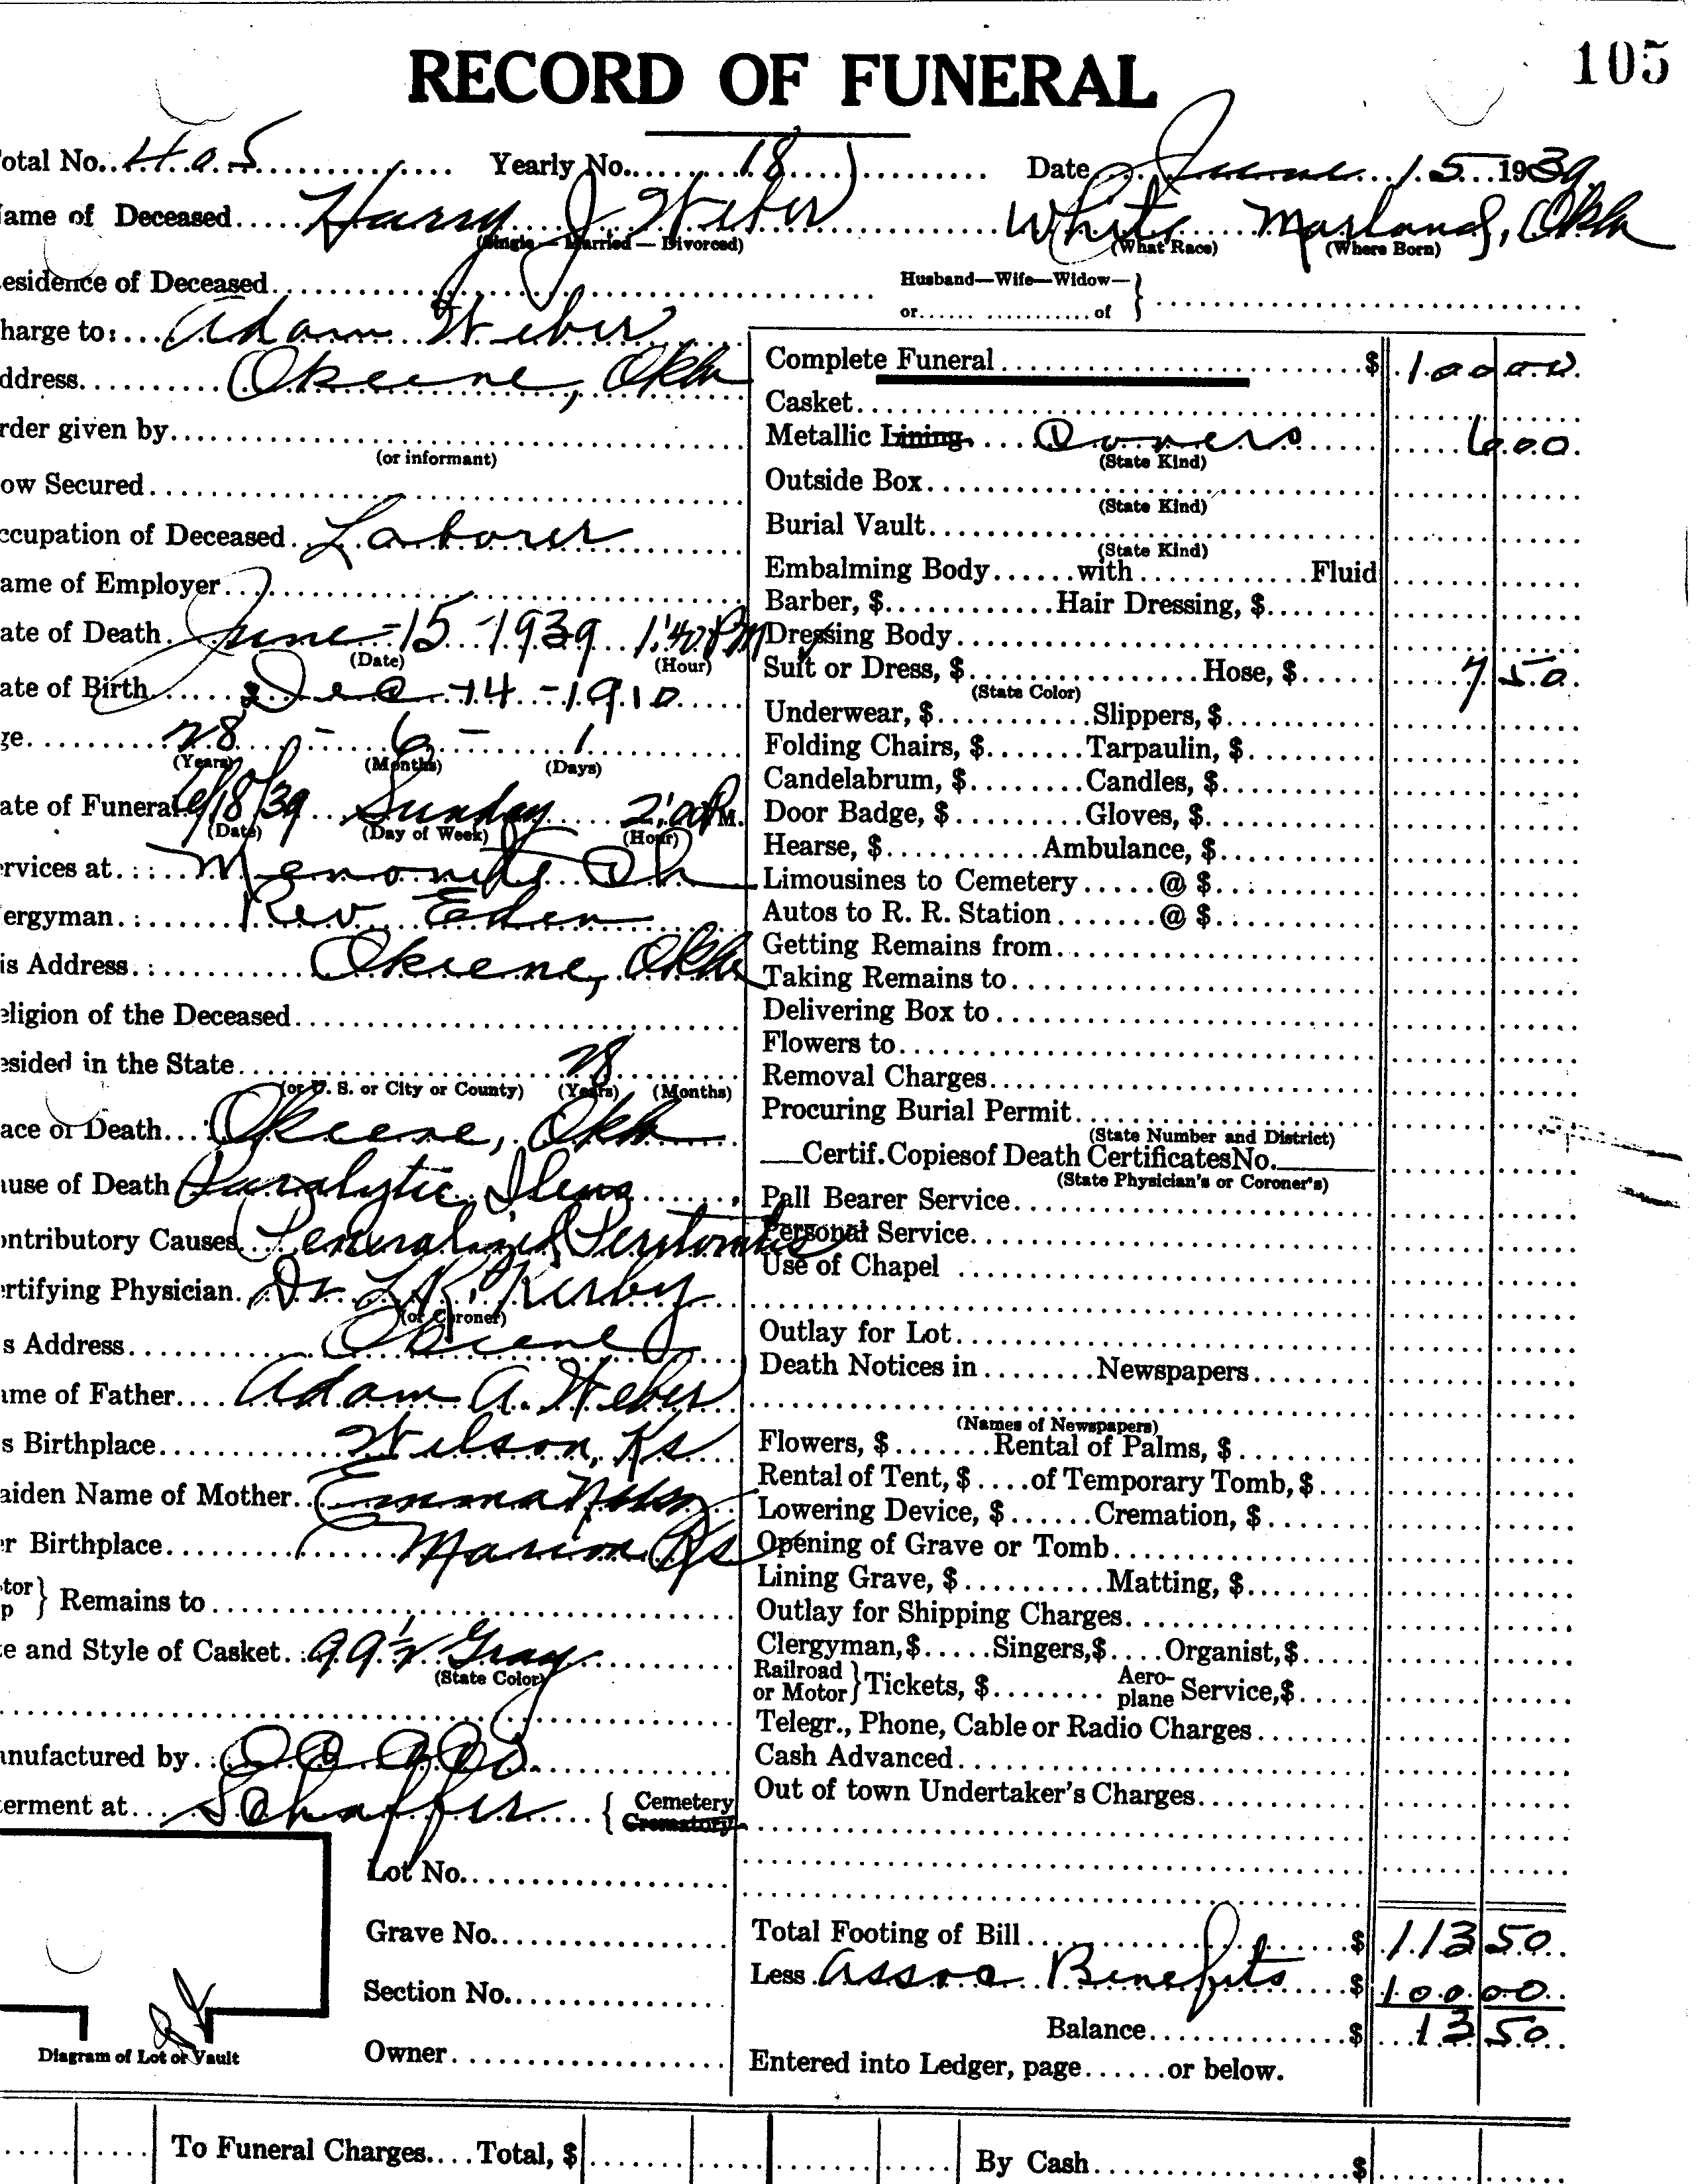 105
RECORD OF FUNERAL
otal No. 405 Yearly No. 18 Date June 15 1939
ame of Deceased Harry J Weber White Marland, Okla
(Single — Married — Divorced) (What Race) (Where Born)
esidence of Deceased Husband—Wife—Widow— or of }
harge to: Adam Weber
ddress Okeene, Okla
rder given by
(or informant)
ow Secured
ccupation of Deceased Laborer
ame of Employer
ate of Death June-15-1939 1:40 PM
(Date) (Hour)
ate of Birth Dec-14-1910
ge 28 - 6 - 1
(Years) (Months) (Days)
ate of Funeral 6/18/39 Sunday 2:00 P.M.
(Date) (Day of Week) (Hour)
rvices at Menonite Ch
ergyman Rev. Eden
is Address Okeene, Okla
eligion of the Deceased
esided in the State 28
(or U. S. or City or County) (Years) (Months)
ace of Death Okeene, Okla
use of Death Paralytic Ileus
ontributory Causes Generalized Peritonitis
ertifying Physician Dr. L.R. Kirby
(or Coroner)
s Address Okeene
ame of Father Adam A. Weber
s Birthplace Wilson, Ks
aiden Name of Mother Emma
r Birthplace Marion Ks
tor p } Remains to
e and Style of Casket 99½ Gray
(State Color)
anufactured by
terment at Schaffer { Cemetery Crematory
Lot No.
Grave No.
Section No.
Owner
Diagram of Lot or Vault
Complete Funeral $ 100 00
Casket
Metallic Lining 6 00
(State Kind)
Outside Box
(State Kind)
Burial Vault
(State Kind)
Embalming Body with Fluid
Barber, $ Hair Dressing, $
Dressing Body
Suit or Dress, $ Hose, $ 7 50
(State Color)
Underwear, $ Slippers, $
Folding Chairs, $ Tarpaulin, $
Candelabrum, $ Candles, $
Door Badge, $ Gloves, $
Hearse, $ Ambulance, $
Limousines to Cemetery @ $
Autos to R. R. Station @ $
Getting Remains from
Taking Remains to
Delivering Box to
Flowers to
Removal Charges
Procuring Burial Permit
(State Number and District)
Certif. Copies of Death Certificates No.
(State Physician's or Coroner's)
Pall Bearer Service
Personal Service
Use of Chapel
Outlay for Lot
Death Notices in Newspapers
(Names of Newspapers)
Flowers, $ Rental of Palms, $
Rental of Tent, $ of Temporary Tomb, $
Lowering Device, $ Cremation, $
Opening of Grave or Tomb
Lining Grave, $ Matting, $
Outlay for Shipping Charges
Clergyman, $ Singers, $ Organist, $
Railroad or Motor } Tickets, $ Aeroplane Service, $
Telegr., Phone, Cable or Radio Charges
Cash Advanced
Out of town Undertaker's Charges
Total Footing of Bill $ 113 50
Less Assoc Benefits $ 100 00
Balance $ 13 50
Entered into Ledger, page or below.
To Funeral Charges Total, $ By Cash $